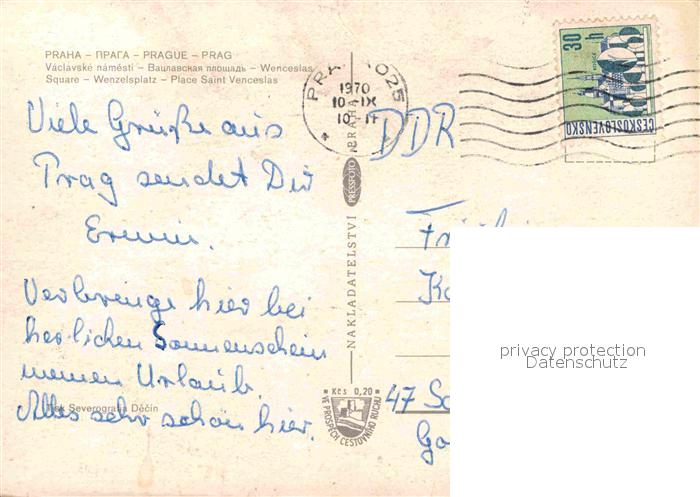 PRAHA – ПРАГА – PRAGUE – PRAG
Václavské náměstí – Вацлавская площадь – Wenceslas
Square – Wenzelsplatz – Place Saint Venceslas
Viele Grüße aus
Prag sendet Dir
Erwin.
Verbringe hier bei
herrlichen Sonnenschein
meinen Urlaub.
Alles sehr schön hier.
Tisk Severografia Děčín
NAKLADATELSTVÍ PRESSFOTO PRAHA
Kčs 0,20
VE PROSPĚCH CESTOVNÍHO RUCHU
PRA 025
1970
10 IX
10
30 h
ČESKOSLOVENSKO
DDR
47
privacy protection
Datenschutz